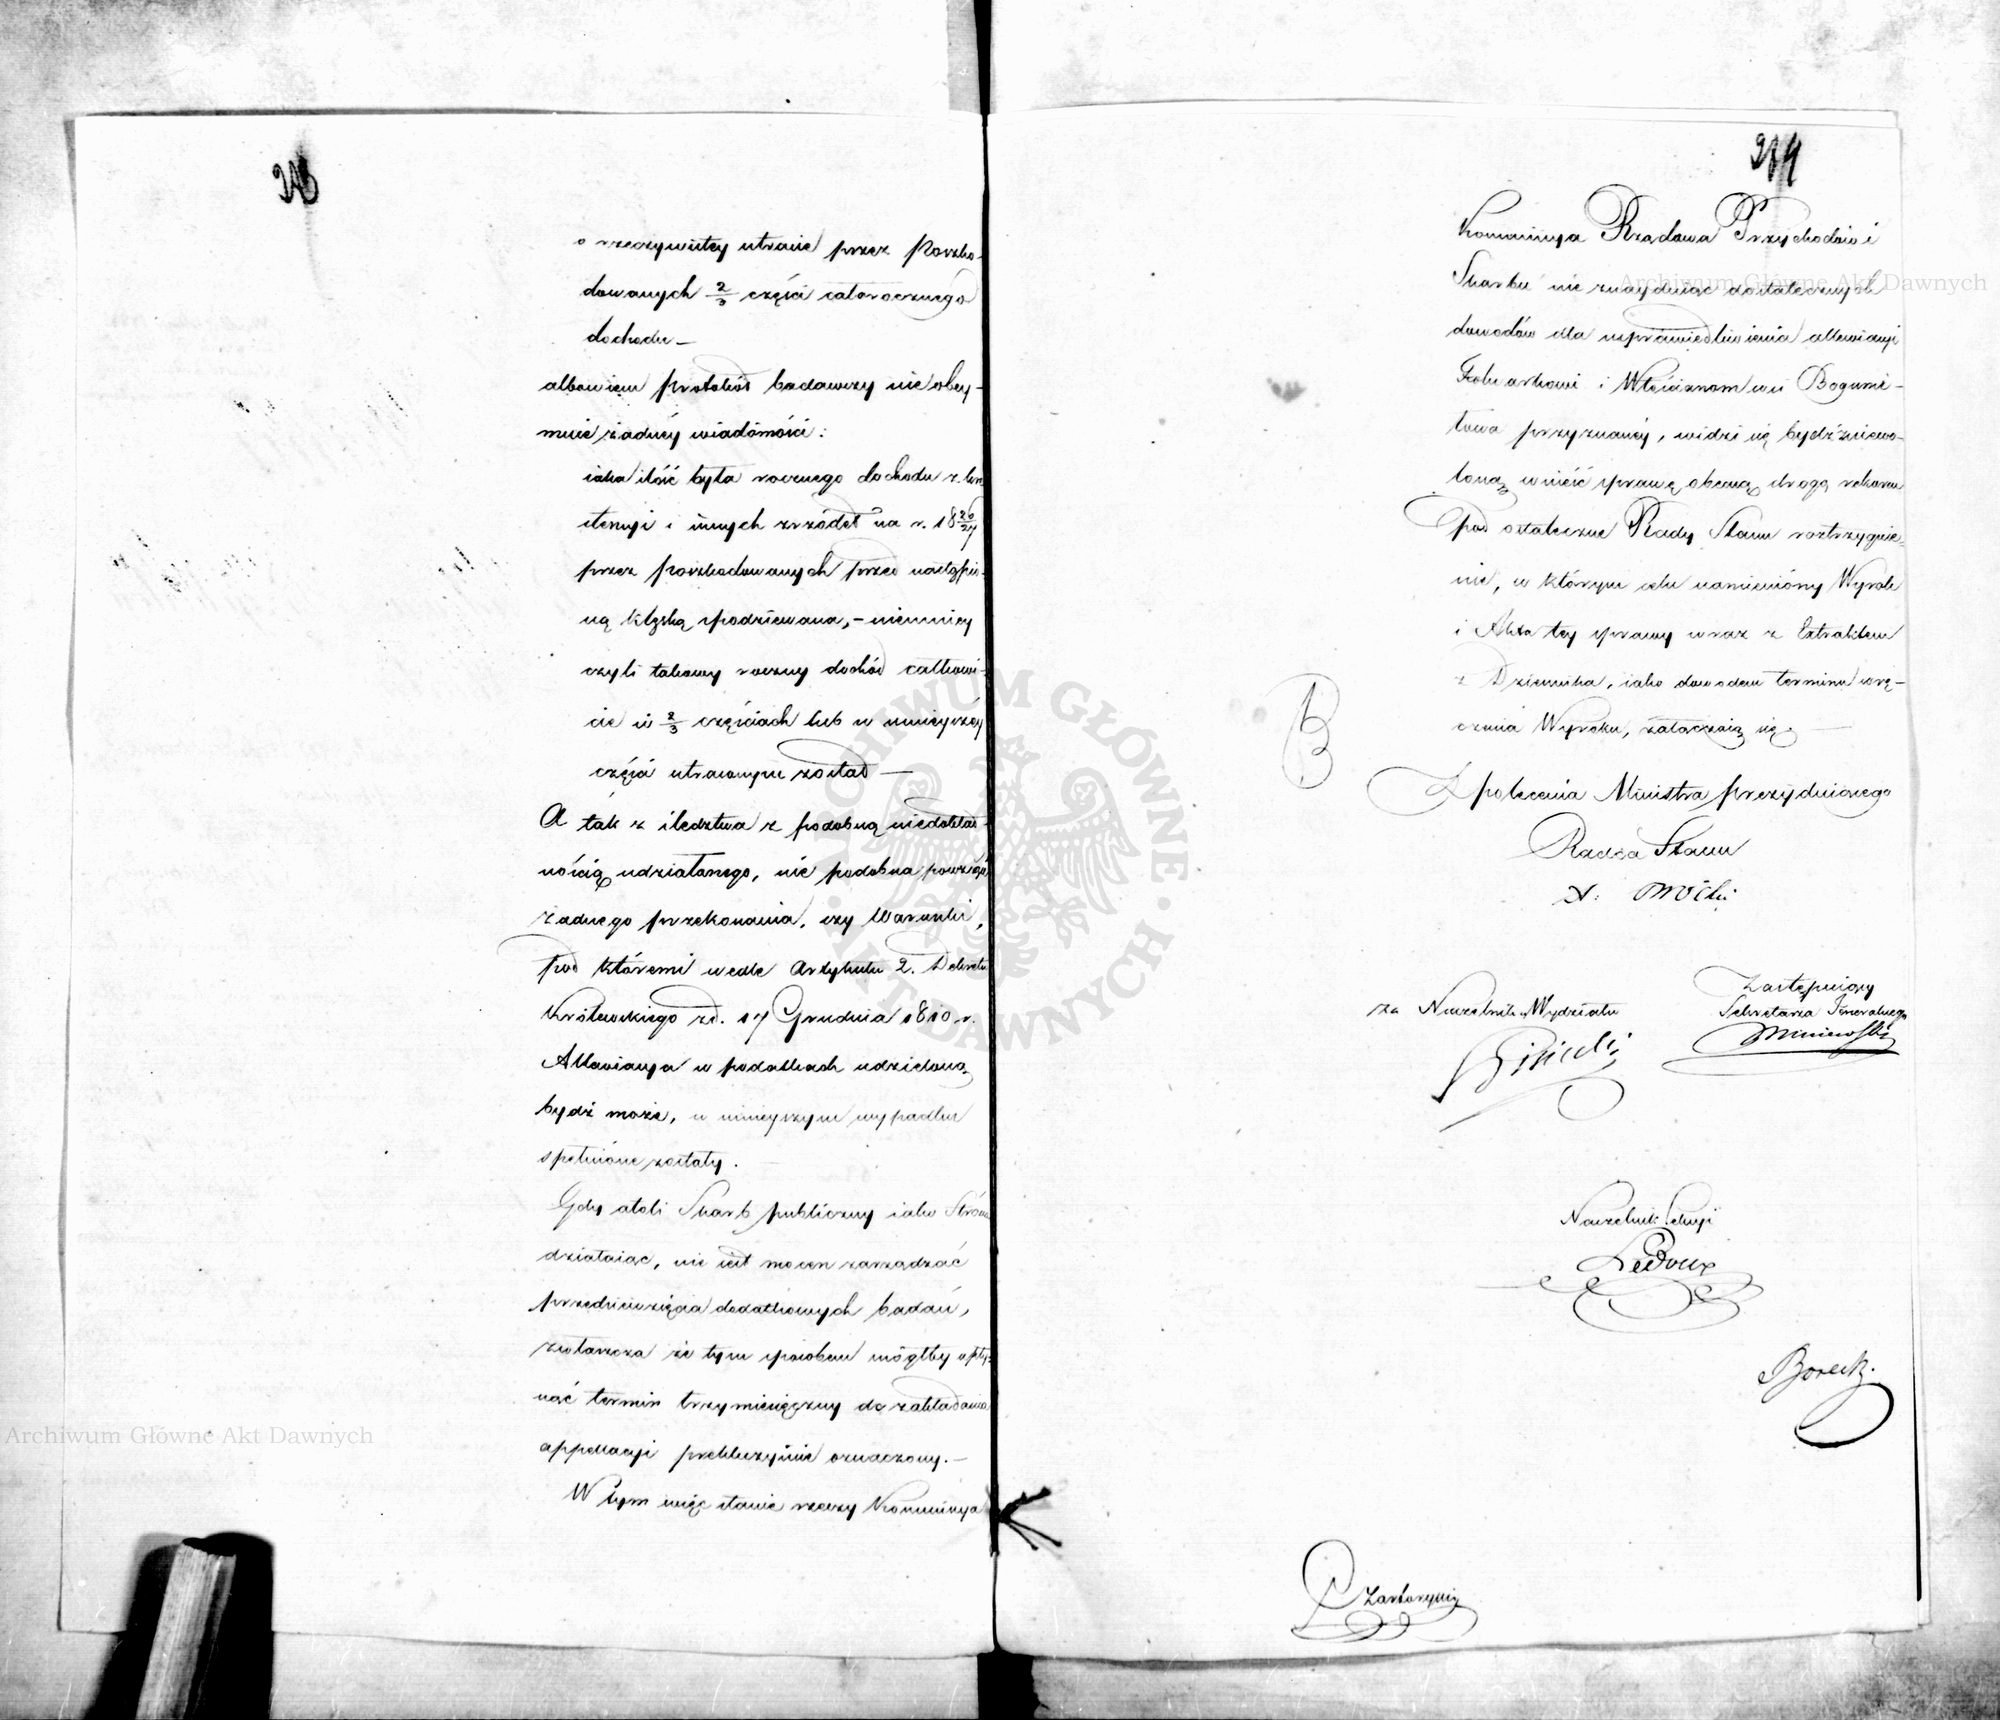 o rzeczywistey utracie przez Poszko-
dowanych 2/3 części całorocznego
dochodu —
albowiem protokół badawczy nie obey-
muie żadnéy wiadomości:
iaka ilość była rocznego dochodu z kre-
stencyi i innych źródeł na r. 1826/27
przez poszkodowanych przed nastąpio-
ną klęską spodziewana, — niemniey
czyli takowy roczny dochód całkowi-
cie w 2/3 częściach lub w mnieyszéy
części utraconym został —
A tak z śledztwa z podobną niedokład-
nością udziałanego, nie podobna powziąść
żadnego przekonania, czy Warunki,
pod któremi wedle Artykułu 2. Dekretu
Królewskiego z d. 17 Grudnia 1810 r.
Allewiacya w podatkach udzieloną
bydź może, w ninieyszym wypadku
spełnione zostały.
Gdy atoli Skarb publiczny iako Strona
działaiąc, nie iest mocen zarządzać
przedsięwzięcia dodatkowych badań,
zwłaszcza że tym sposobem mógłby upły-
nąć termin trzymiesięczny do zakładania
appellacyi prekluzyinie oznaczony. —
W tym więc stanie rzeczy Kommissya
Kommissya Rządowa Przychodów i
Skarbu nie znayduiąc dostatecznych
dowodów dla usprawiedliwienia allewiacyi
Folwarkowi i Włościanom wsi Bogumi-
łowa przyznanéy, widzi się bydź zniewo-
loną wnieść sprawę obecną drogą rekursu
pod ostateczne Rady Stanu roztrzygnie-
nie, w którym celu namieniony Wyrok
i Akta tey sprawy wraz z Extraktem
z Dziennika, iako dowodem terminu wrę-
czenia Wyroku, załączaią się. —
Z polecenia Ministra prezyduiącego
Radca Stanu
za Naczelnika Wydziału
Zastępuiący
Sekretarza Jeneralnego
Naczelnik Sekcyi
Ledoux
Archiwum Główne Akt Dawnych
Archiwum Główne Akt Dawnych
ARCHIWUM GŁÓWNE AKT DAWNYCH